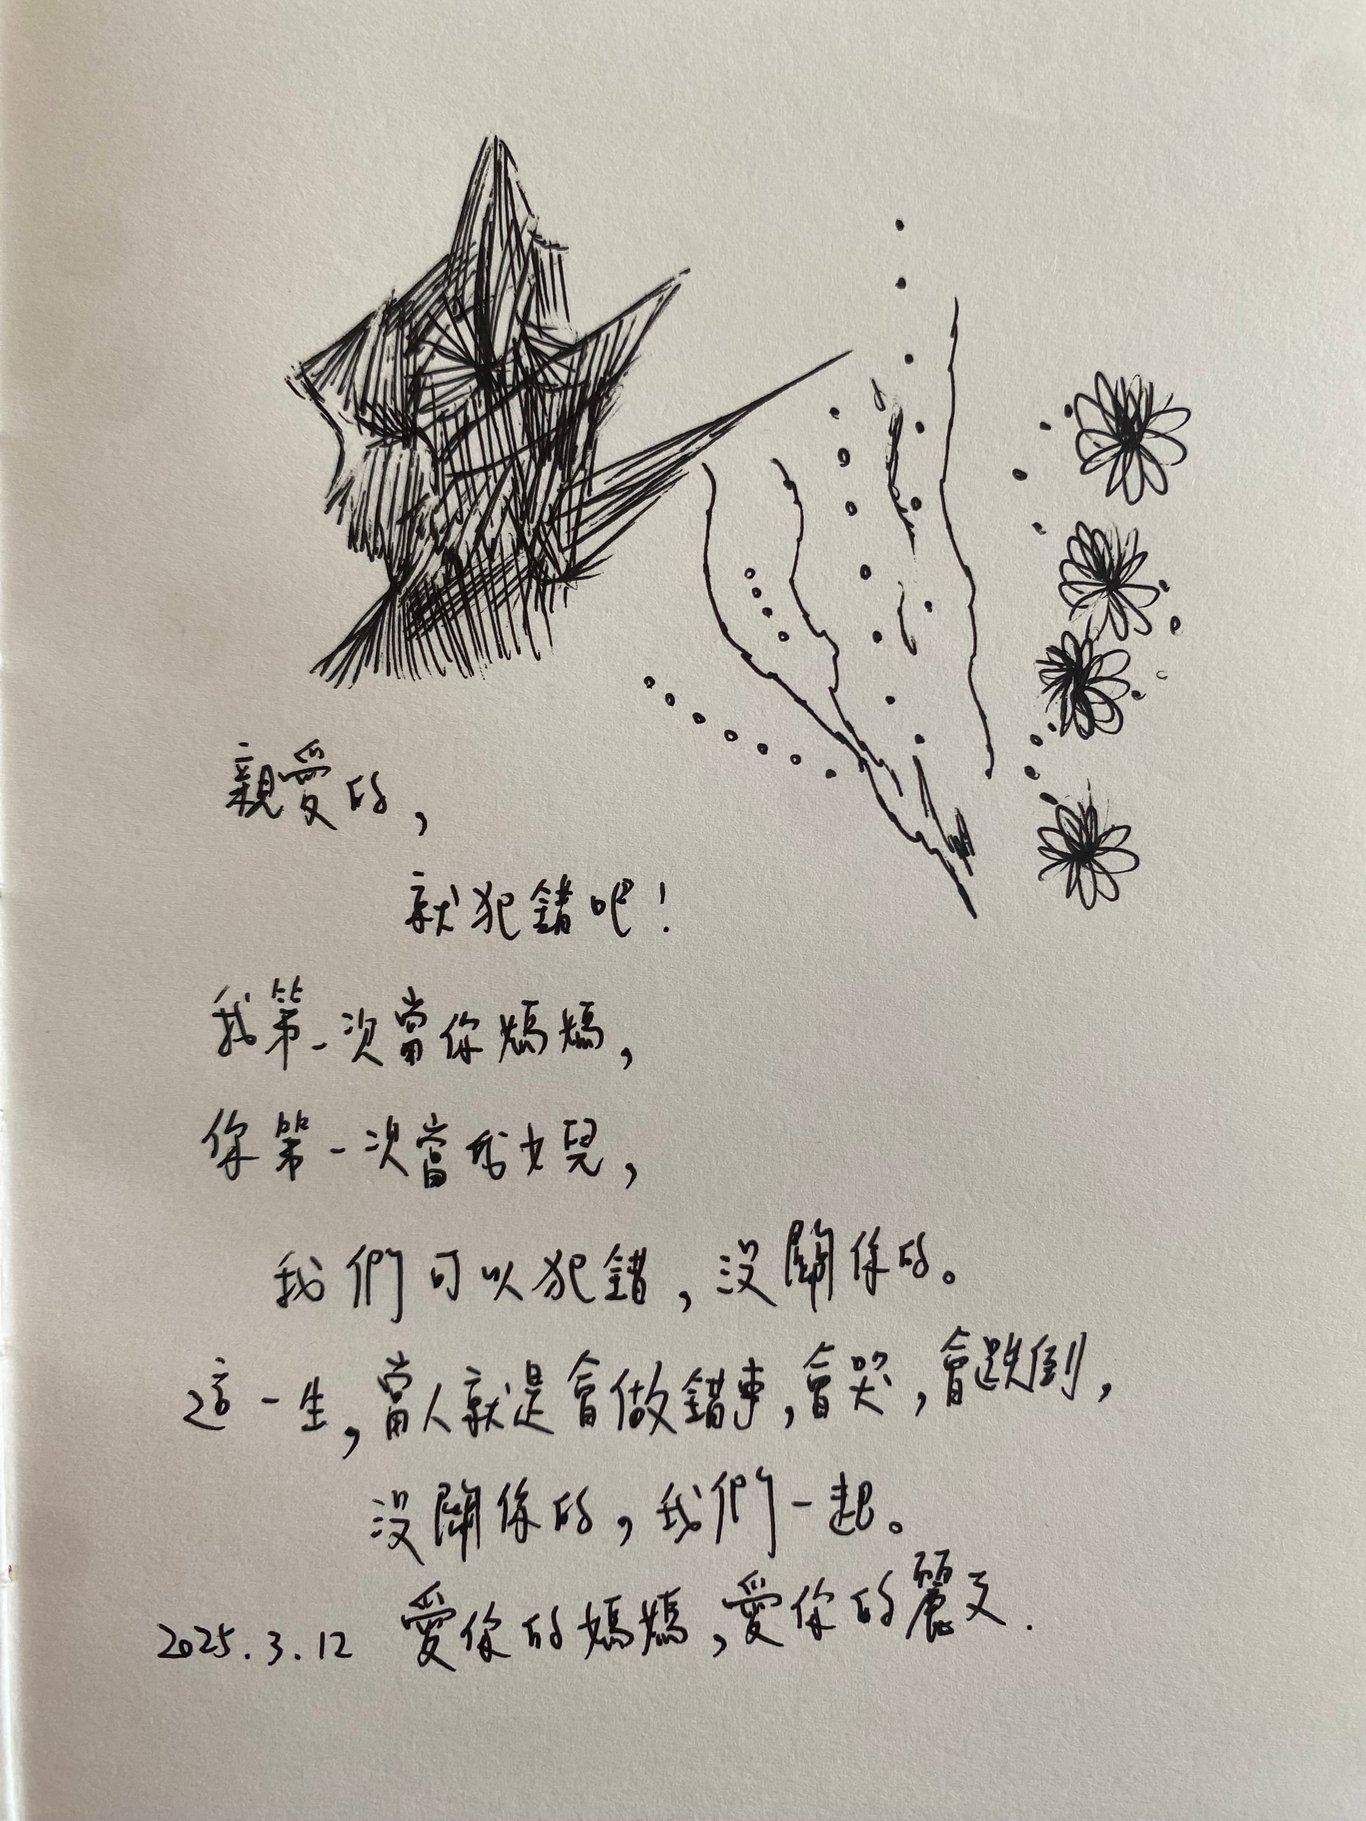 親愛的，
就犯錯吧！
我第一次當你媽媽，
你第一次當我女兒，
我們可以犯錯，沒關係的。
這一生，當人就是會做錯事，會哭，會跌倒，
沒關係的，我們一起。
2025.3.12 愛你的媽媽，愛你的麗文.